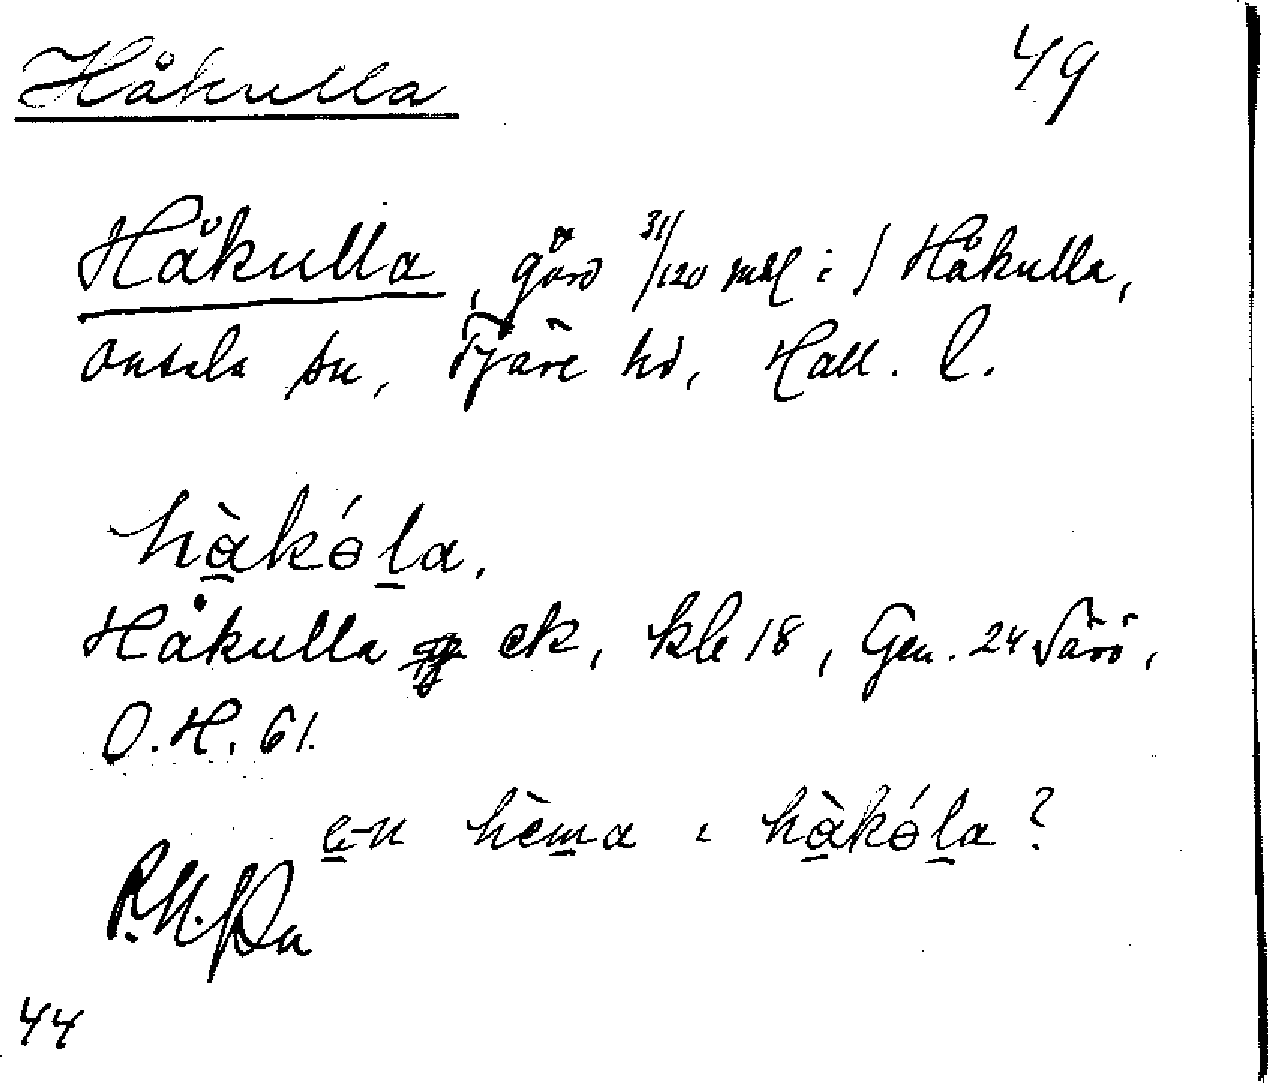 Håkulla 49
Håkulla, gård 31/120 mtl i 1 Håkulla,
Onsala sn, Fjäre hd, Hall. l.
hàkóla.
Håkulla ek, kbl 18, Gen. 24 Särö,
O.H. 61.
e-n hèma i hàkóla?
44